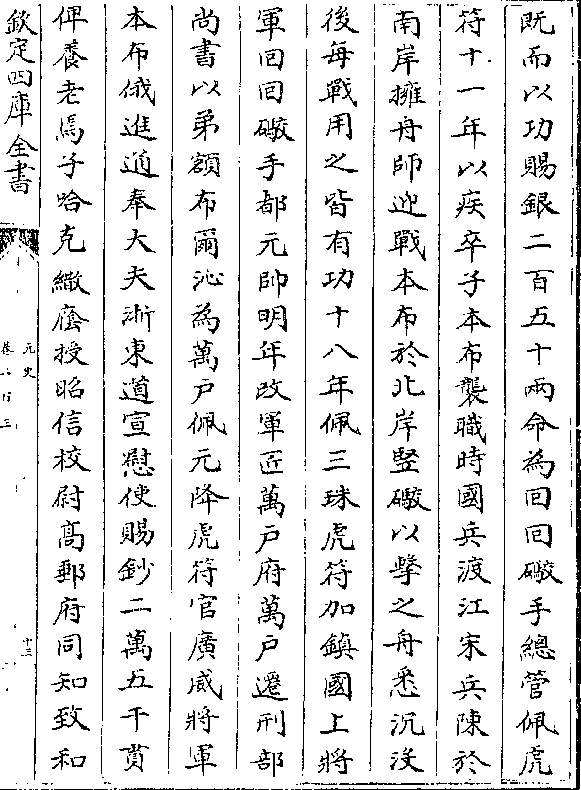 既而以功賜銀二百五十兩命為回回礮手總管佩虎
符十一年以疾卒子本布襲職時國兵渡江宋兵陳於
南岸擁舟師迎戰本布於北岸竪礮以擊之舟悉沉沒
後每戰用之皆有功十八年佩三珠虎符加鎮國上將
軍回回礮手都元帥明年改軍匠萬戶府萬戶遷刑部
尚書以弟額布爾沁為萬戶佩元降虎符官廣威將軍
本布俄進通奉大夫浙東道宣慰使賜鈔二萬五千貫
俾養老焉子哈克繖廕授昭信校尉髙郵府同知致和
欽定四庫全書
元史
卷二百三
十三